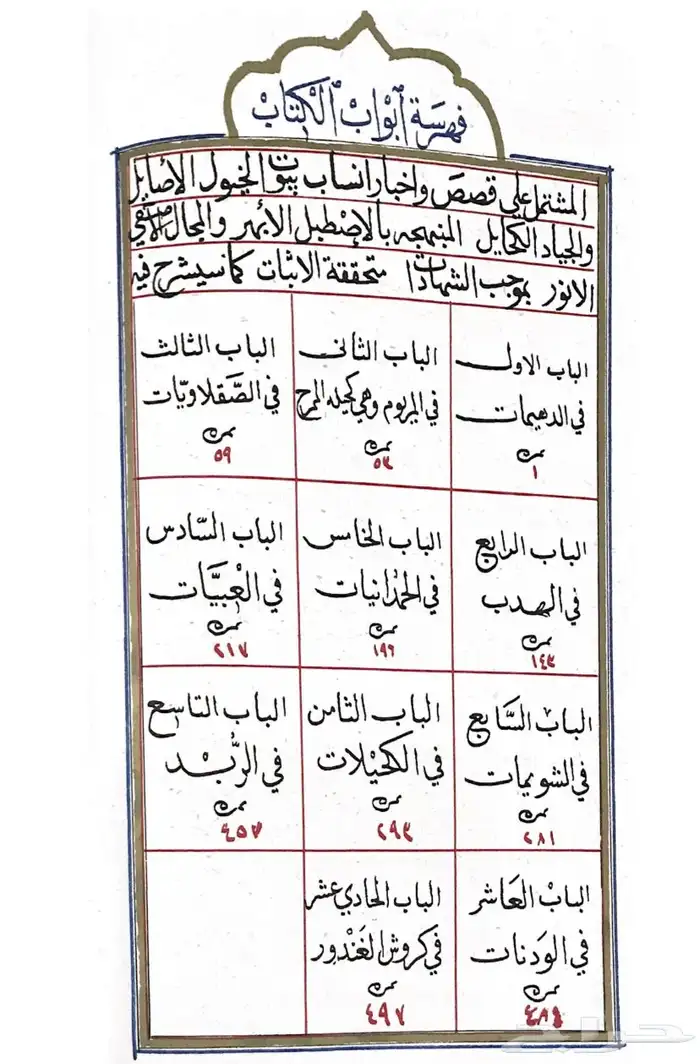 فهرسة ابواب الكتاب
المشتمل على قصص واخبار انساب بيوت الخيول الأصايل
والجياد الكحايل المبتهجه بالإصطبل الأبهر والمجال الاصفى
الانور بموجب الشهادات متحققة الاثبات كما سيشرح فيه
الباب الاول
في الدهيمات
نمرة
١
الباب الثانى
في المريوم وهي كحيله المريح
نمرة
٥٣
الباب الثالث
في الصَّقلاويَّات
نمرة
٥٩
الباب الرابع
في الهدب
نمرة
١٤٣
الباب الخامس
في الحمدانيات
نمرة
١٩٦
الباب السَّادس
في العْبيَّات
نمرة
٢١٧
الباب السَّابع
في الشويمات
نمرة
٢٨١
الباب الثامن
في الكحيْلات
نمرة
٢٩٣
الباب التاسع
في الرُّبْد
نمرة
٤٥٧
الباب العَاشر
في الوَدنات
نمرة
٤٨٤
الباب الحادي عشر
في كروش الغَنْدور
نمرة
٤٩٧
حراج